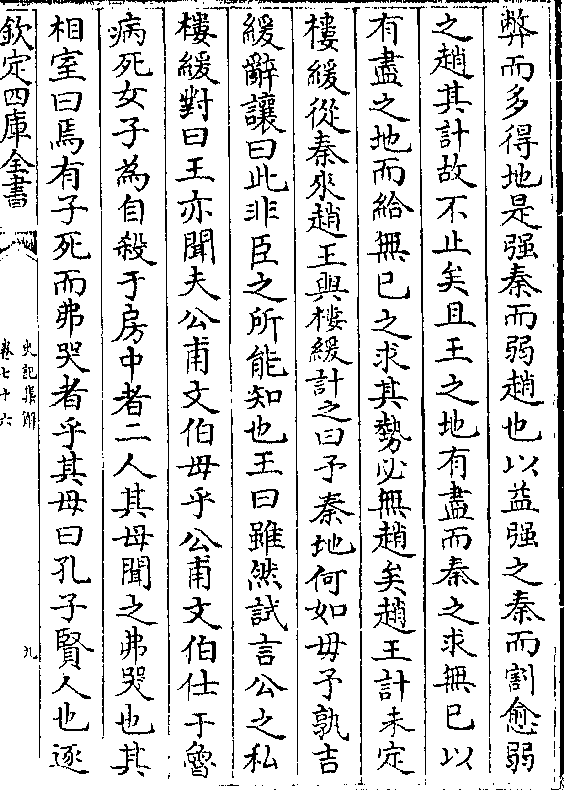 弊而多得地是强秦而弱趙也以益强之秦而割愈弱
之趙其計故不止矣且王之地有盡而秦之求無已以
有盡之地而給無已之求其勢必無趙矣趙王計未定
樓緩從秦來趙王與樓緩計之曰予秦地何如毋予孰吉
緩辭讓曰此非臣之所能知也王曰雖然試言公之私
樓緩對曰王亦聞夫公甫文伯母乎公甫文伯仕于魯
病死女子為自殺于房中者二人其母聞之弗哭也其
相室曰焉有子死而弗哭者乎其母曰孔子賢人也逐
欽定四庫全書
史記集解
卷七十六
九